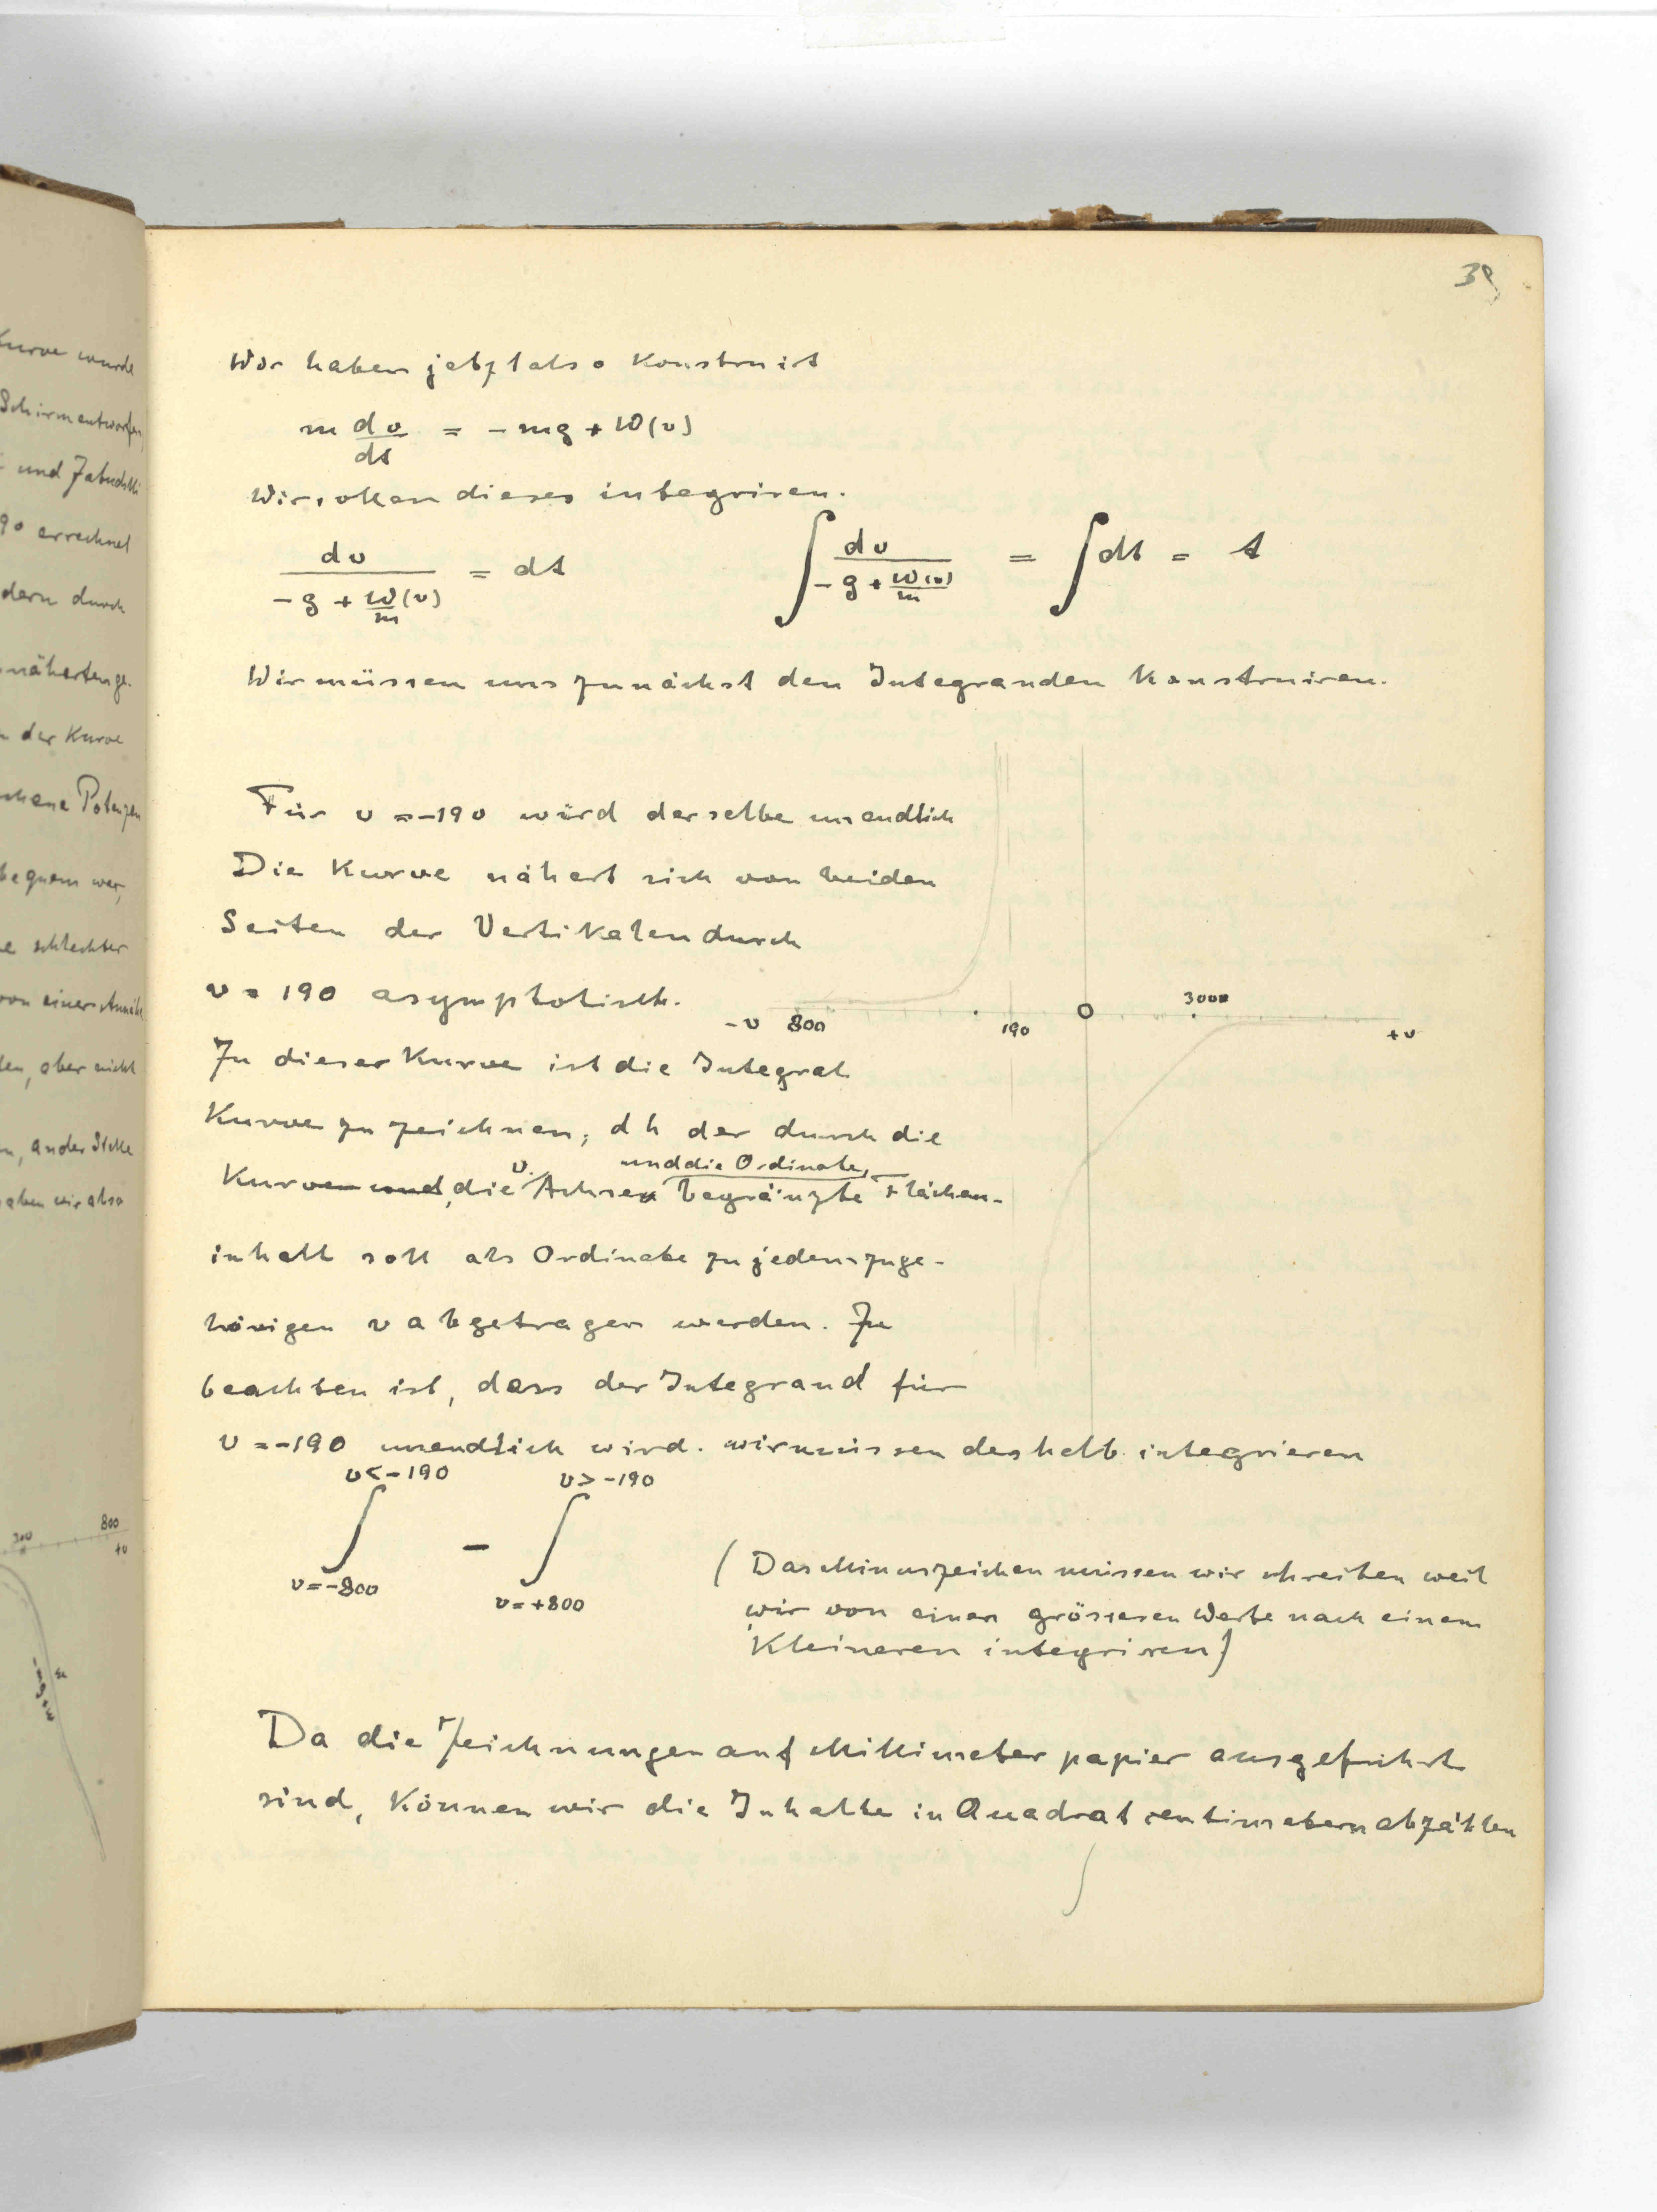 39
Wir haben jetzt also Konstruirt
m dv/dt = - mg + W(v)
Wir sollen dieses integriren.
dv / (- g + W/m (v)) = dt ∫ dv / (- g + W(v)/m) = ∫ dt = t
Wir müssen uns zunächst den Integranden Konstruiren.
Für v = -190 wird derselbe unendlich
Die Kurve nähert sich von beiden
Seiten der Vertikalen durch
v = 190 asymptotisch.
-v 800 190 0 300 +v
Zu dieser Kurve ist die Integral
Kurve zu zeichnen, d h der durch die
Kurve und, die v. Achsen und die Ordinate, begränzte Flächen-
inhalt soll als Ordinate zu jedem zuge-
hörigen v abgetragen werden. Zu
beachten ist, dass der Integrand für
v = -190 unendlich wird. wir müssen deshalb integrieren
v < -190 v > -190
∫ - ∫
v = -800 v = +800
( Das Minuszeichen müssen wir schreiben weil
wir von einem grösseren Werte nach einem
Kleineren integriren )
Da die Zeichnungen auf Millimeter papier ausgeführt
sind, Können wir die Inhalte in Quadrat centimetern abzählen
Kurve wurde
Schirm entworfen
und
90 errechnet
dern durch
näherten ge.
der Kurve
Potenzen
bequem war,
schlechter
von einer
den, aber nicht
n, an der Stelle
haben wir also
300 800
+v